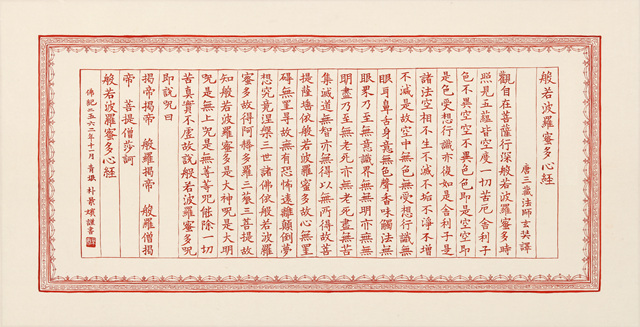 般若波羅蜜多心經
唐三藏法師玄奘譯
觀自在菩薩行深般若波羅蜜多時
照見五蘊皆空度一切苦厄舍利子
色不異空空不異色色即是空空即
是色受想行識亦復如是舍利子是
諸法空相不生不滅不垢不淨不增
不減是故空中無色無受想行識無
眼耳鼻舌身意無色聲香味觸法無
眼界乃至無意識界無無明亦無無
明盡乃至無老死亦無老死盡無苦
集滅道無智亦無得以無所得故菩
提薩埵依般若波羅蜜多故心無罣
礙無罣礙故無有恐怖遠離顛倒夢
想究竟涅槃三世諸佛依般若波羅
蜜多故得阿耨多羅三藐三菩提故
知般若波羅蜜多是大神呪是大明
呪是無上呪是無等等呪能除一切
苦真實不虛故說般若波羅蜜多呪
即說呪曰
揭帝揭帝 般羅揭帝 般羅僧揭
帝 菩提僧莎訶
般若波羅蜜多心經
佛紀二五六二年十一月 朴 謹書